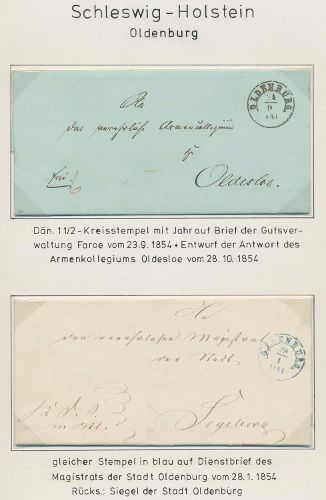 Schleswig-Holstein
Oldenburg
OLDENBURG
24
9
An
das verehrliche Armencollegium
zu
Oldesloe.
frei
Dän. 11/2-Kreisstempel mit Jahr auf Brief der Gutsver-
waltung Faroe vom 23.9.1854 + Entwurf der Antwort des
Armenkollegiums Oldesloe vom 28.10.1854
An
den verehrlichen Magistrat
der Stadt
OLDENBURG
Segeberg
gleicher Stempel in blau auf Dienstbrief des
Magistrats der Stadt Oldenburg vom 28.1.1854
Rücks.: Siegel der Stadt Oldenburg